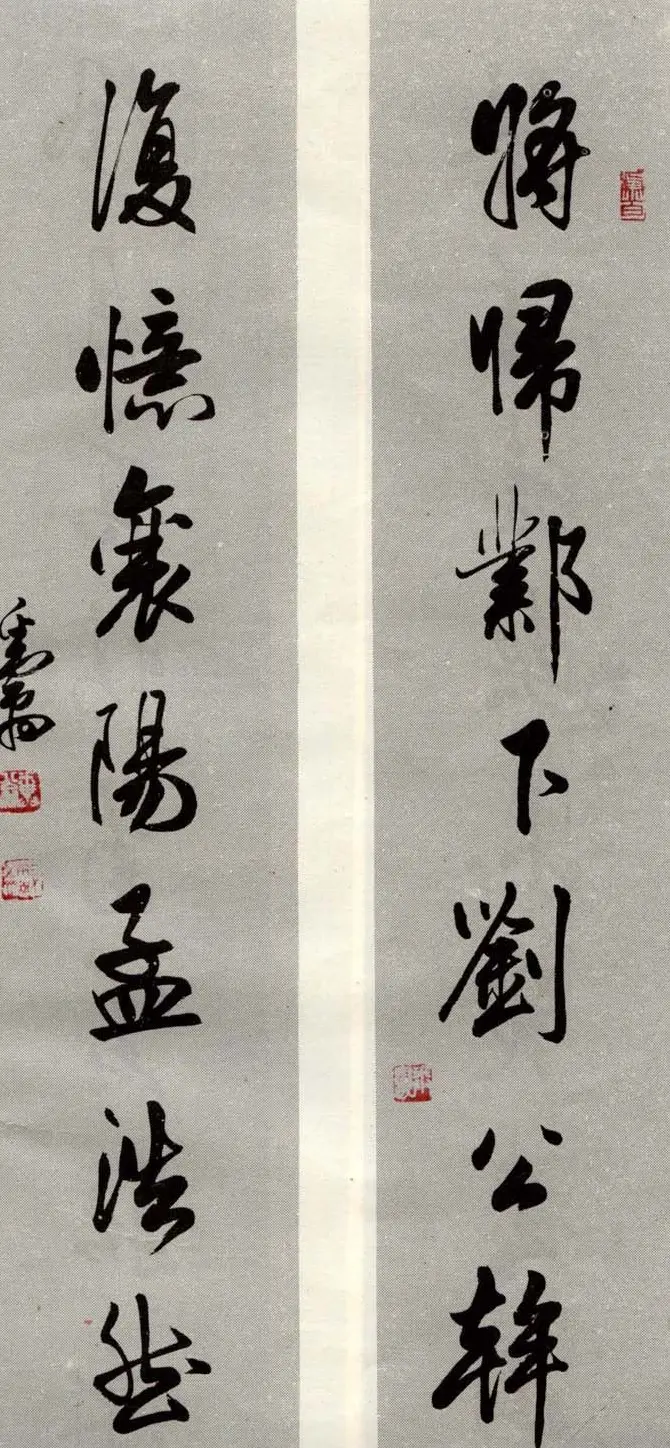 将歸鄴下劉公幹
復憶襄陽孟浩然